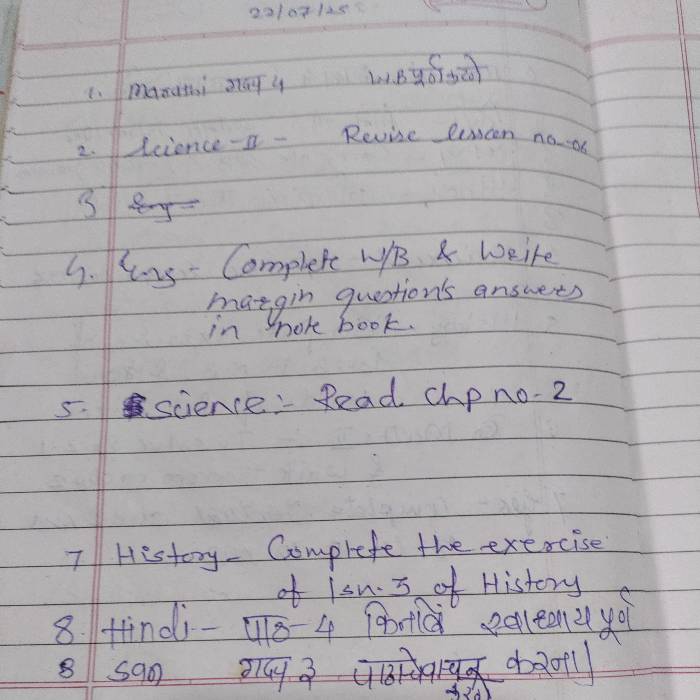 22/07/25
1. Marathi गद्य 4 W.B पूर्ण करणे
2. Science-II - Revise lesson no-06
3
4. Eng - Complete W/B & Write
margin question's answers
in note book.
5. science:- Read chp no-2
7 History- Complete the exercise
of lsn.3 of History
8. Hindi- पाठ-4 स्वाध्याय पूर्ण
8 San गद्य 3 करना।